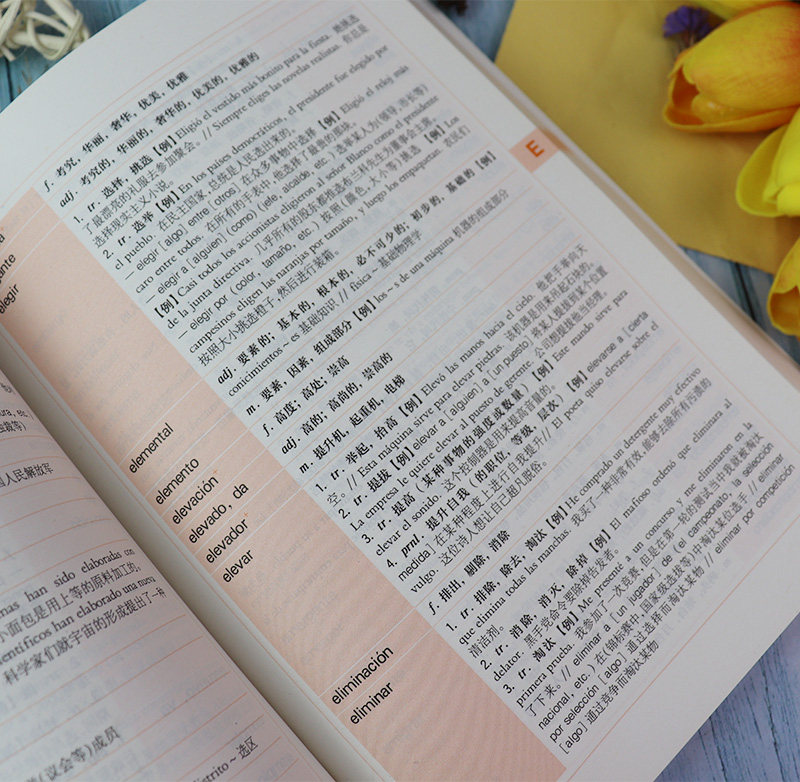 nas han sido elaboradas con
面包是用上等的原料加工的。
entíficos han elaborado una nueva
科学家们就宇宙的形成提出了一种
(议会等)成员
distrito ~ 选区
E
f. 考究，华丽，奢华，优美，优雅
elegir
adj. 考究的，华丽的，奢华的，优美的，优雅的
1. tr. 选择，挑选【例】Eligió el vestido más bonito para la fiesta. 她挑选
了最漂亮的礼服去参加聚会。// Siempre eliges las novelas realistas. 你总是
选择现实主义小说。
2. tr. 选举【例】En los países democráticos, el presidente fue elegido por
el pueblo. 在民主国家，总统是人民选出来的。
— elegir [algo] entre [otros] 在众多事物中选择【例】Eligió el reloj más
caro entre todos. 在所有的手表中，他选择了最贵的那块。
— elegir a [alguien] (como) (jefe, alcalde, etc.) 选举某人为(领导、市长等)
【例】Casi todos los accionistas eligieron al señor Blanco como el presidente
de la junta directiva. 几乎所有的股东都推选布兰科先生为董事会主席。
— elegir por (color, tamaño, etc.) 按照(颜色、大小等)挑选【例】Los
campesinos eligen las naranjas por tamaño, y luego los empaquetan. 农民们
按照大小挑选橙子，然后进行装箱。
elemental
adj. 要素的；基本的，根本的，必不可少的；初步的，基础的【例】
conicimientos ~ es 基础知识 // física ~ 基础物理学
elemento
m. 要素，因素，组成部分【例】los ~ s de una máquina 机器的组成部分
elevación
f. 高度；高处；崇高
elevado, da
adj. 高的；高尚的，崇高的
elevador
m. 提升机，起重机，电梯
elevar
1. tr. 举起，抬高【例】Elevó las manos hacia el cielo. 他把手举向天
空。// Esta máquina sirve para elevar piedras. 该机器是用来吊起石块的。
2. tr. 提拔【例】elevar a [alguien] a (un puesto) 将某人提拔到某个位置
La empresa le quiere elevar al puesto de gerente. 公司想提拔他当经理。
3. tr. 提高(某种事物的强度或数量)【例】Este mando sirve para
elevar el sonido. 这个控制器是用来提高音量的。
4. prnl. 提升自我(的职位，等级，层次)【例】elevarse a [cierta
medida] 在某种程度上进行自我提升// El poeta quiso elevarse sobre el
vulgo. 这位诗人想让自己超凡脱俗。
eliminación
f. 排出，剔除，消除
eliminar
1. tr. 排除，除去，淘汰【例】He comprado un detergente muy efectivo
que elimina todas las manchas. 我买了一种非常有效，能够去除所有污渍的
清洁剂。
2. tr. 消除，消灭，除掉【例】El mafioso ordenó que eliminara al
delator. 黑手党命令要除掉告发者。
3. tr. 淘汰【例】Me presenté a un concurso, y me eliminaron en la
primera prueba. 我参加了一次竞赛，但是在第一轮的测试当中我就被淘汰
了下来。// eliminar a [un jugador] de (el campeonato, la selección
nacional, etc.) 在(锦标赛中、国家级选拔等)中淘汰某位选手 // eliminar
por selección [algo] 通过选择而淘汰某物 // eliminar por competición
[algo] 通过竞争而淘汰某物